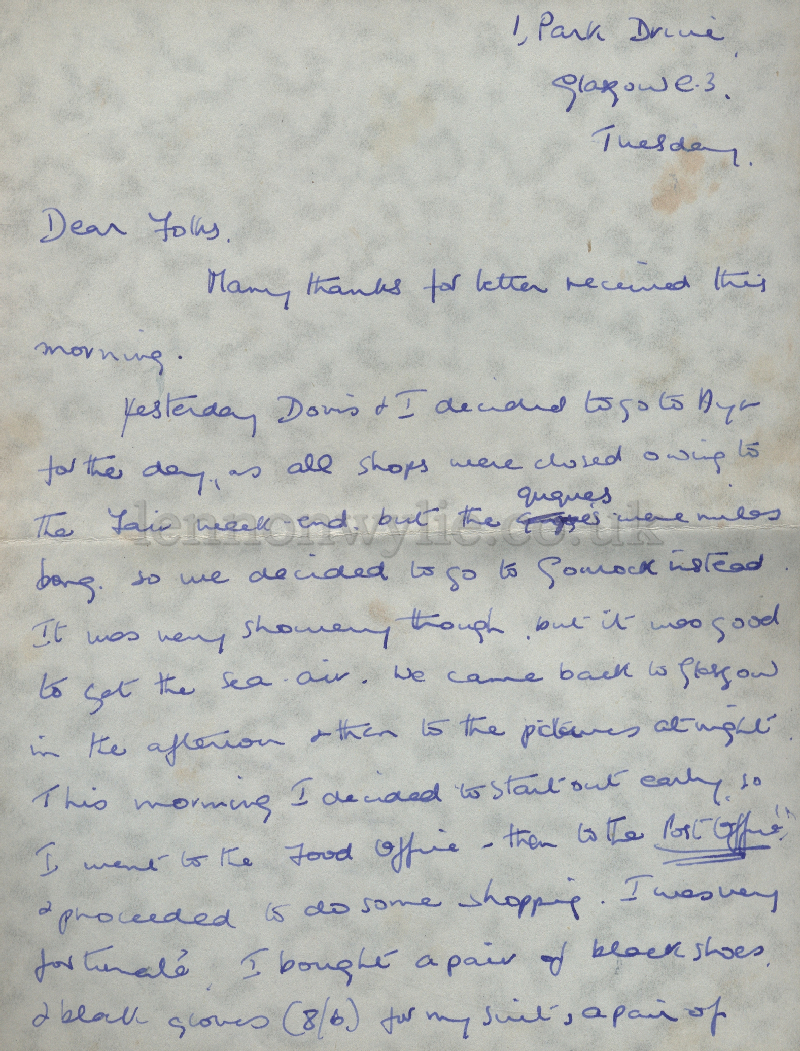 1, Park Drive,
Glasgow C.3.
Tuesday.
Dear Folks.
Many thanks for letter received this
morning.
Yesterday Doris & I decided to go to Ayr
for the day, as all shops were closed owing to
queues
the Fair week-end. but the were miles
long. so we decided to go to Gourock instead.
It was very showery though, but it was good
to get the sea-air. We came back to Glasgow
in the afternoon & then to the pictures at night.
This morning I decided to start out early, so
I went to the Food Office - then to the Post Office!!
& proceeded to do some shopping. I was very
fortunate. I bought a pair of black shoes.
& black gloves (8/6.) for my suit, a pair of
lennonwylie.co.uk